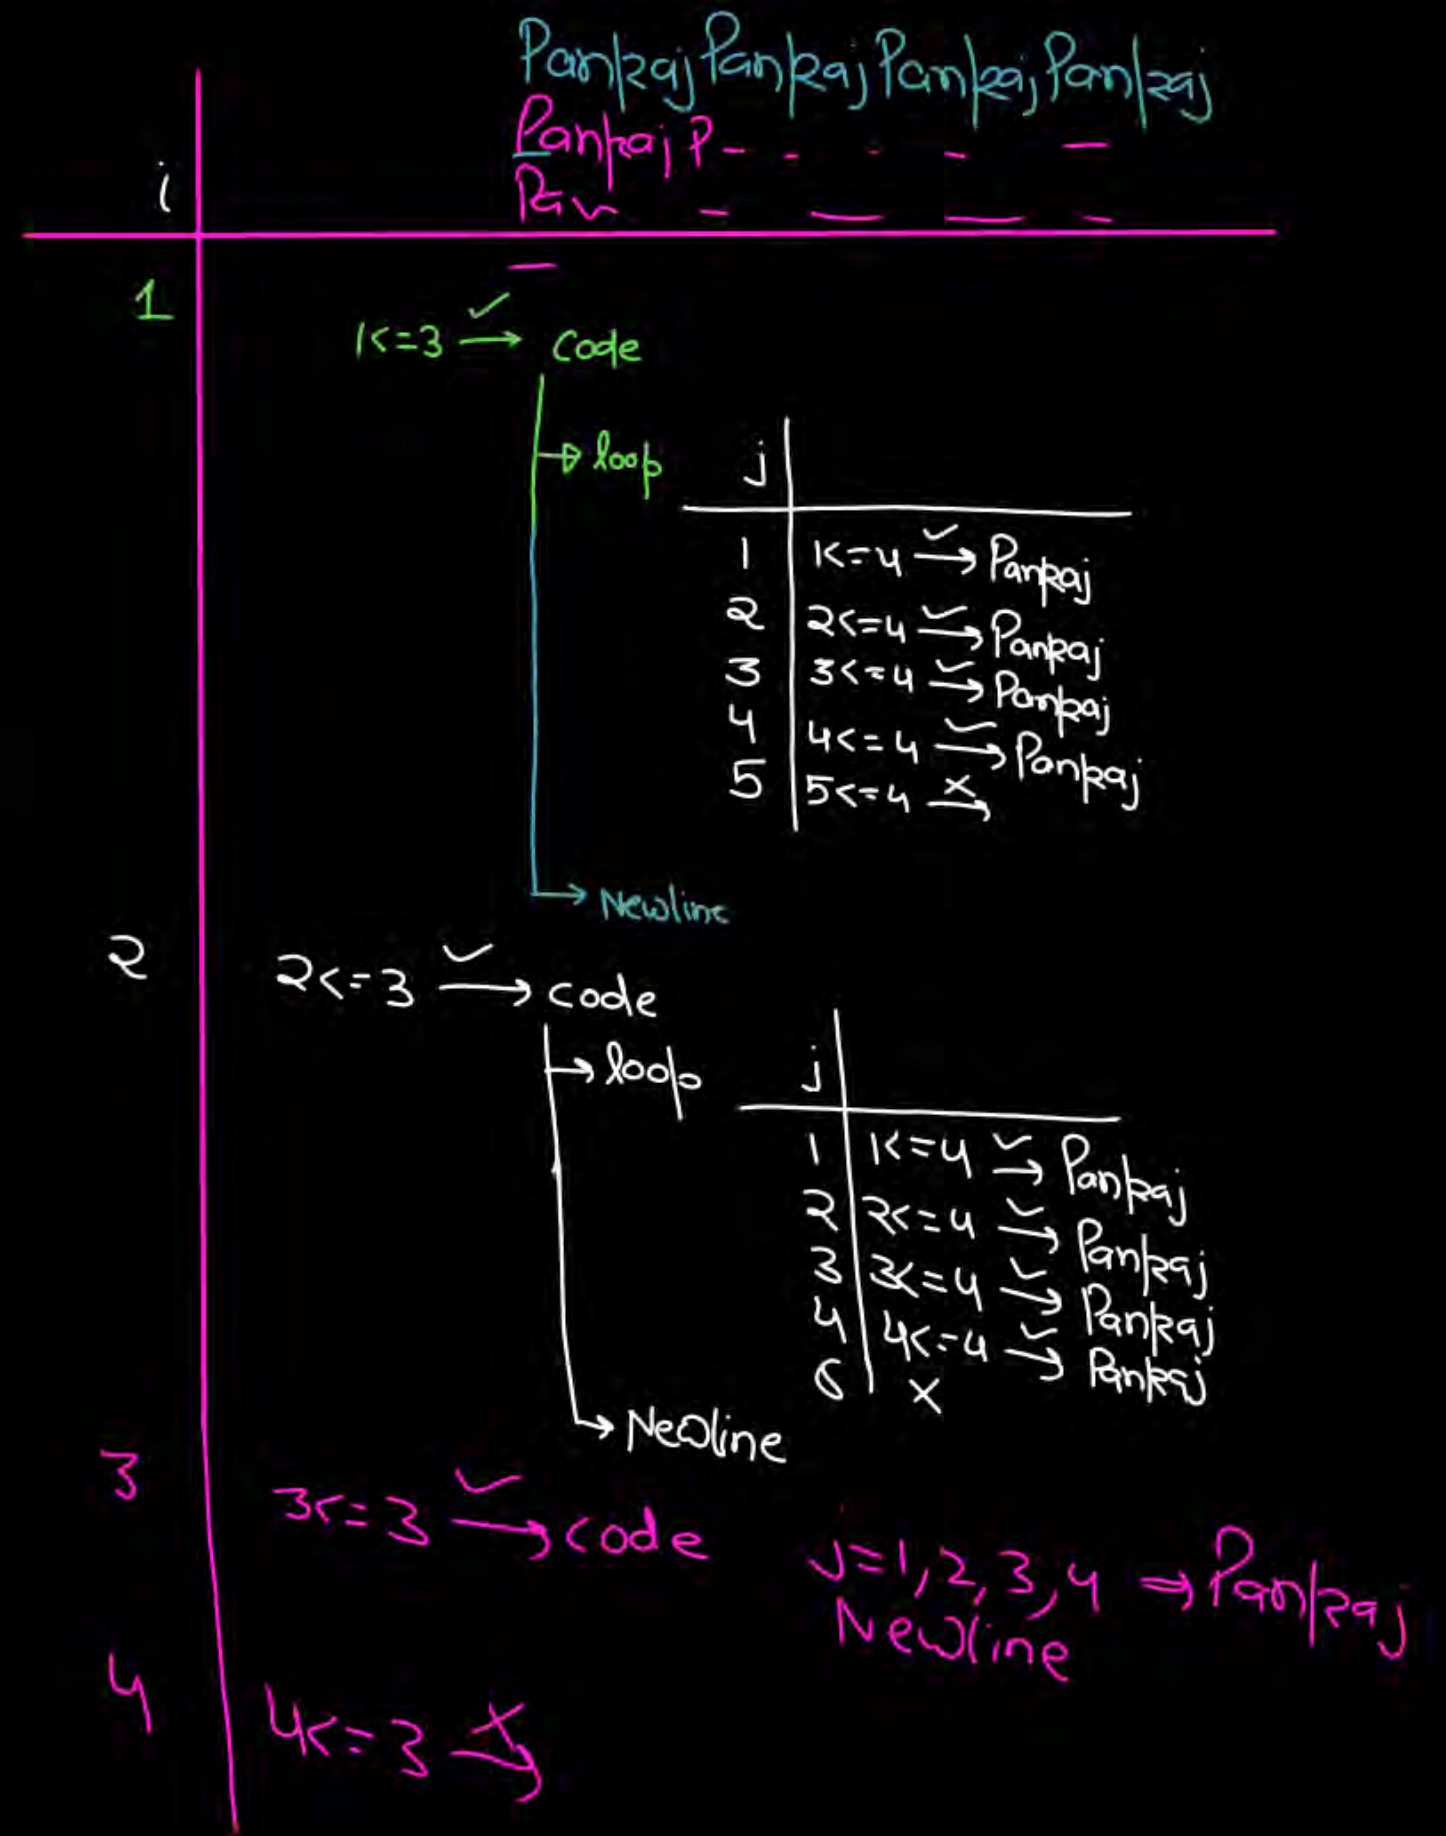 PankajPankajPankajPankaj
PankajP- - - - -
Pan - - - -
i
-
1
1<=3 ✓→ Code
→ loop
j
1 1<=4 ✓→ Pankaj
2 2<=4 ✓→ Pankaj
3 3<=4 ✓→ Pankaj
4 4<=4 ✓→ Pankaj
5 5<=4 x→
→ Newline
2 2<=3 ✓→ code
→ loop
j
1 1<=4 ✓→ Pankaj
2 2<=4 ✓→ Pankaj
3 3<=4 ✓→ Pankaj
4 4<=4 ✓→ Pankaj
x
→ Newline
3 3<=3 ✓→ code j=1,2,3,4 → Pankaj
Newline
4 4<=3 x→